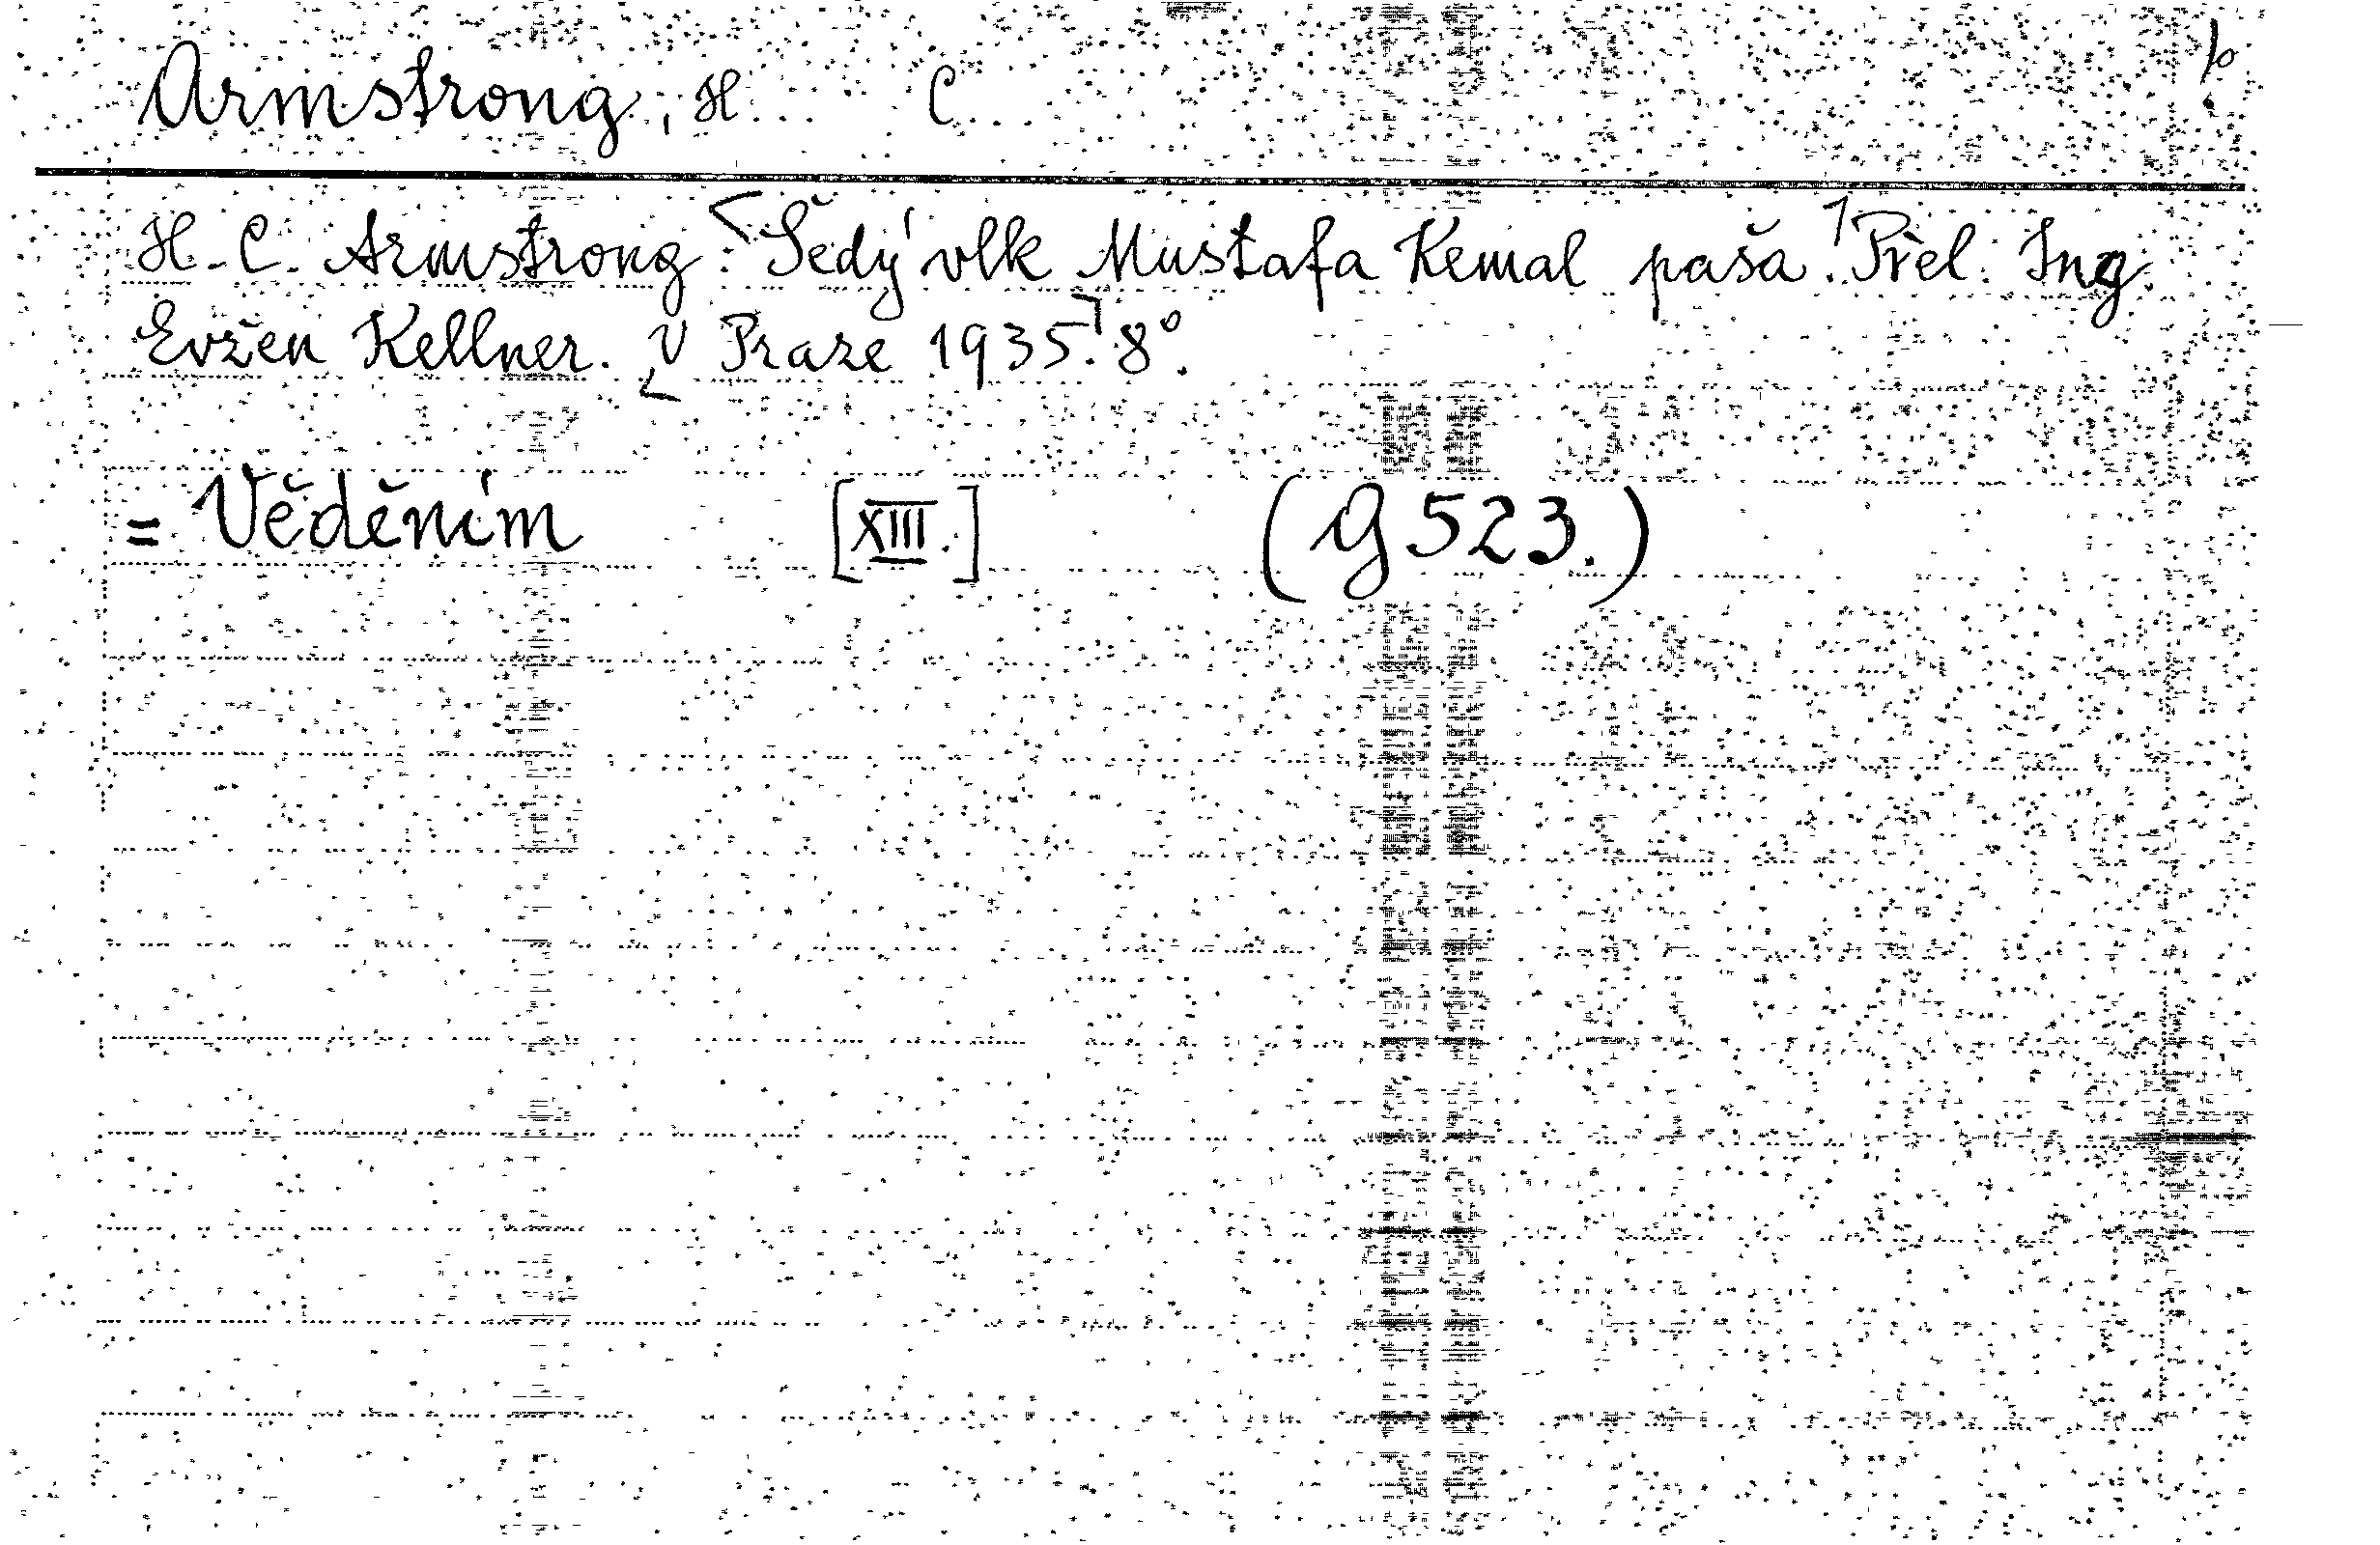 Armstrong, H... C...
H. C. Armstrong: Šedý vlk Mustafa Kemal paša. Přel. Ing.
Evžen Kellner. V Praze 1935. 8°.
= Věděním [XIII.] (G 523.)